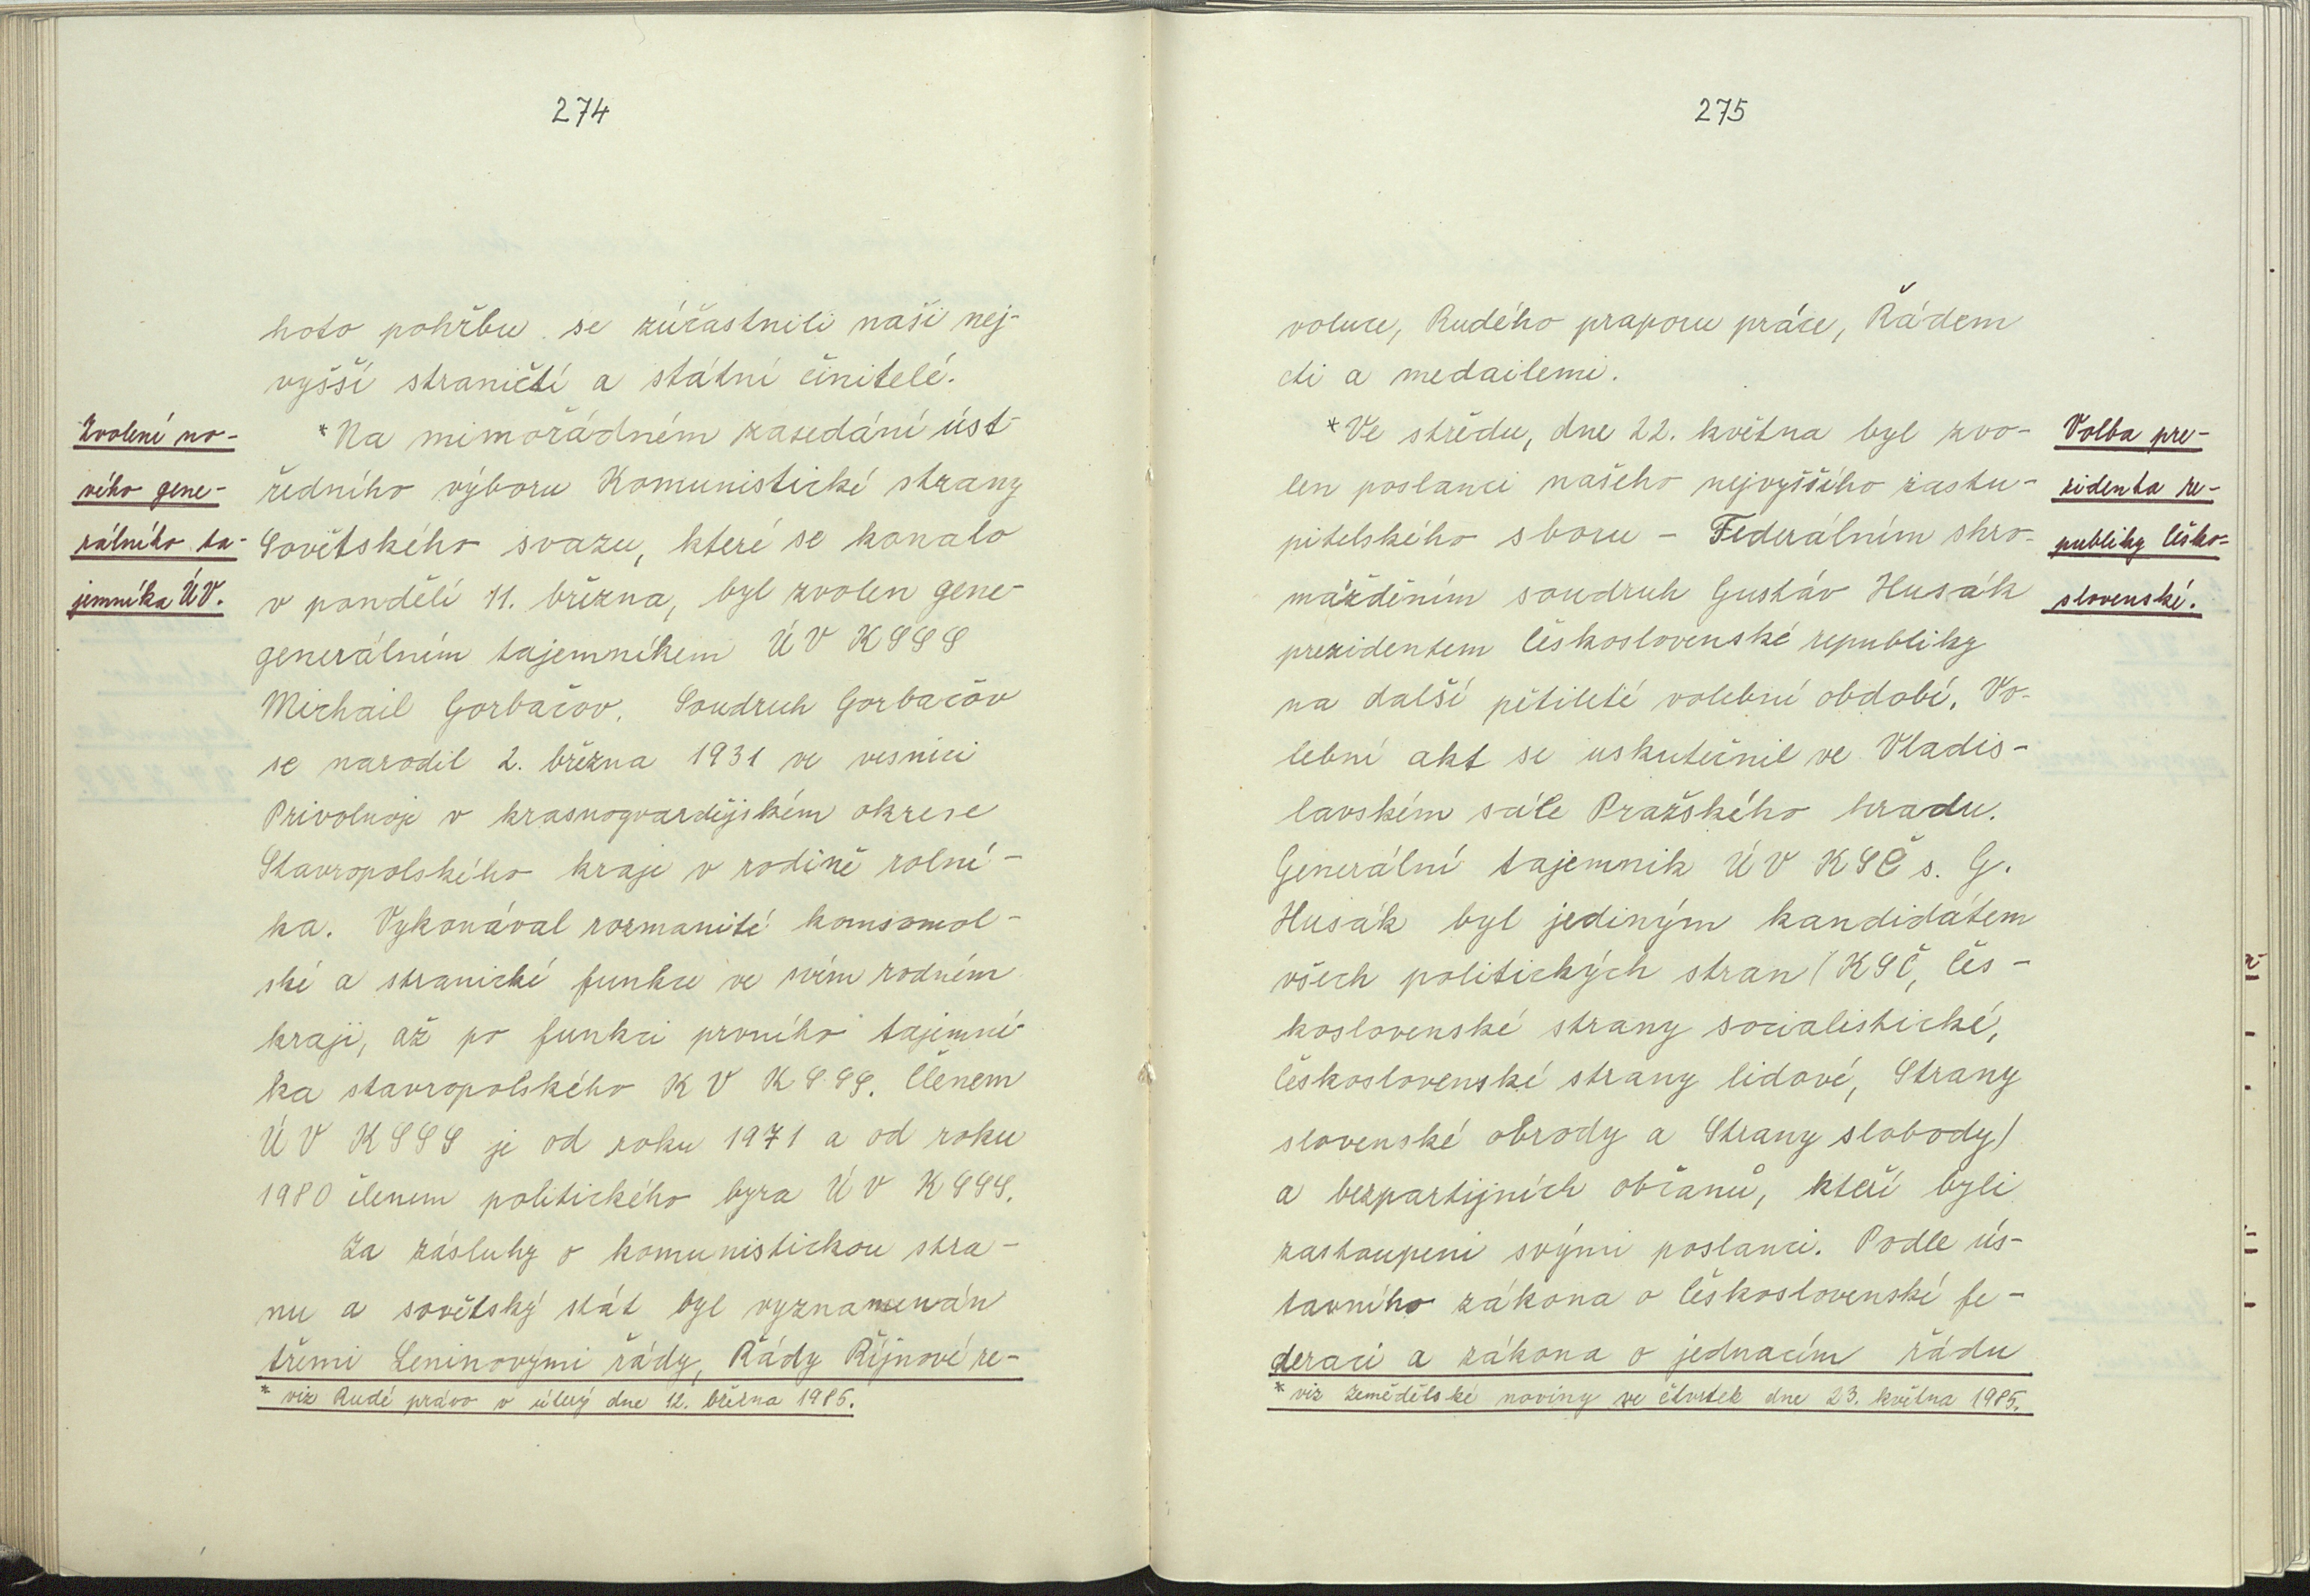 274
hoto pohřbu se zúčastnili naši nej-
vyšší straničtí a státní činitelé.
Zvolení no-
vého gene-
rálního ta-
jemníka ÚV.
*Na mimořádném zasedání úst-
ředního výboru Komunistické strany
Sovětského svazu, které se konalo
v pondělí 11. března, byl zvolen gene-
generálním tajemníkem ÚV KSSS
Michail Gorbačov. Soudruh Gorbačov
se narodil 2. března 1931 ve vesnici
Privolnoje v krasnogvardějském okrese
Stavropolského kraje v rodině rolní-
ka. Vykonával rozmanité komsomol-
ské a stranické funkce ve svém rodném
kraji, až po funkci prvního tajemní-
ka stavropolského KV KSSS. Členem
ÚV KSSS je od roku 1971 a od roku
1980 členem politického byra ÚV KSSS.
Za zásluhy o komunistickou stra-
nu a sovětský stát byl vyznamenán
třemi Leninovými řády, Řády Říjnové re-
* viz Rudé právo v úterý dne 12. března 1985.
275
voluce, Rudého praporu práce, Řádem
cti a medailemi.
*Ve středu, dne 22. května byl zvo-
len poslanci našeho nejvyššího zastu-
pitelského sboru - Federálním shro-
mážděním soudruh Gustáv Husák
prezidentem Československé republiky
na další pětileté volební období. Vo-
lební akt se uskutečnil ve Vladis-
lavském sále Pražského hradu.
Generální tajemník ÚV KSČ s. G.
Husák byl jediným kandidátem
všech politických stran (KSČ, Čes-
koslovenské strany socialistické,
Československé strany lidové, Strany
slovenské obrody a Strany slobody)
a bezpartijních občanů, kteří byli
zastoupeni svými poslanci. Podle ús-
tavního zákona o Československé fe-
deraci a zákona o jednacím řádu
* viz Zemědělské noviny ve čtvrtek dne 23. května 1985.
Volba pre-
zidenta re-
publiky Česko-
slovenské.